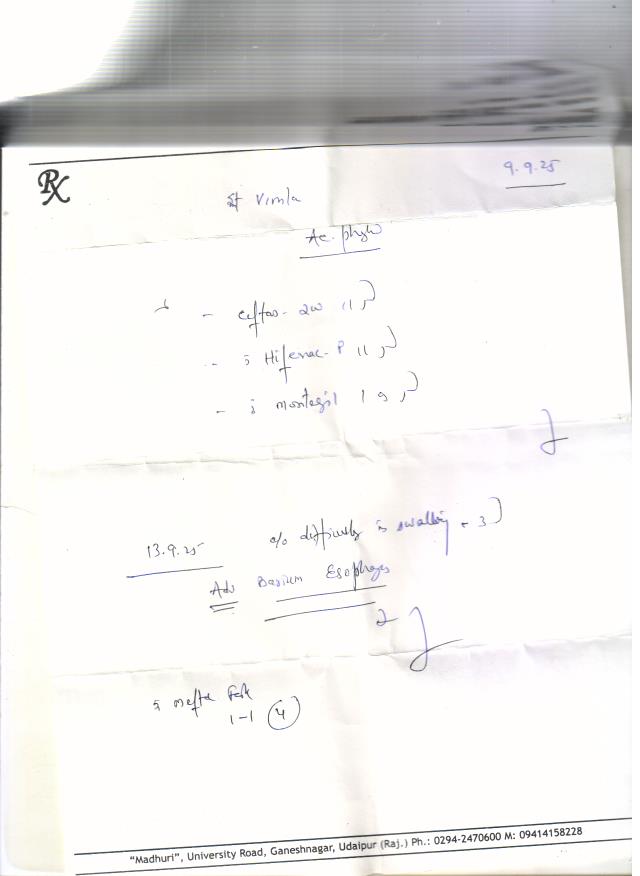 Rx
9.9.25
Vimla
Ac. phy
- Ceftas - 200
- Hifenac - P
- montegil
13.9.25 c/o difficulty in swallowing - 3
Adv Barium Esophagus
mefta
1-1 4
"Madhuri", University Road, Ganeshnagar, Udaipur (Raj.) Ph.: 0294-2470600 M: 09414158228